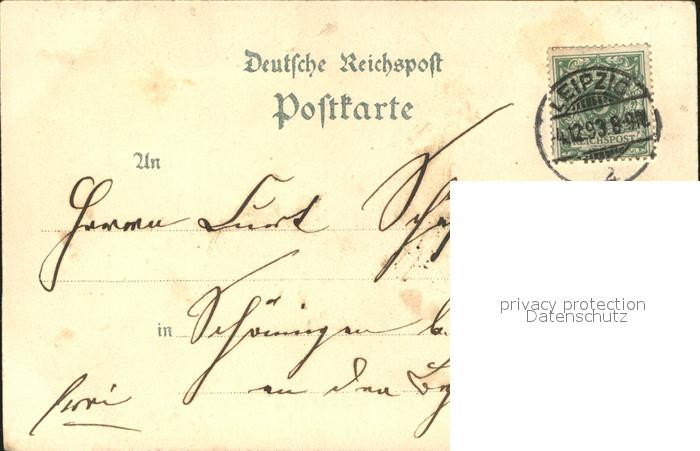 Deutsche Reichspost
Postkarte
LEIPZIG
4.12.93.8-9N.
REICHSPOST
2
An
Herrn Curt
in Schöningen b.
an der
frei
privacy protection
Datenschutz